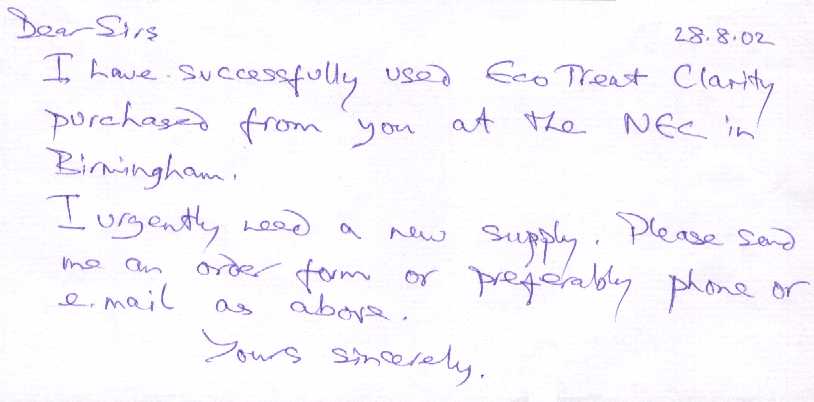 Dear Sirs 28.8.02
I have successfully used EcoTreat Clarity
purchased from you at the NEC in
Birmingham.
I urgently need a new supply. Please send
me an order form or preferably phone or
e.mail as above.
Yours sincerely.